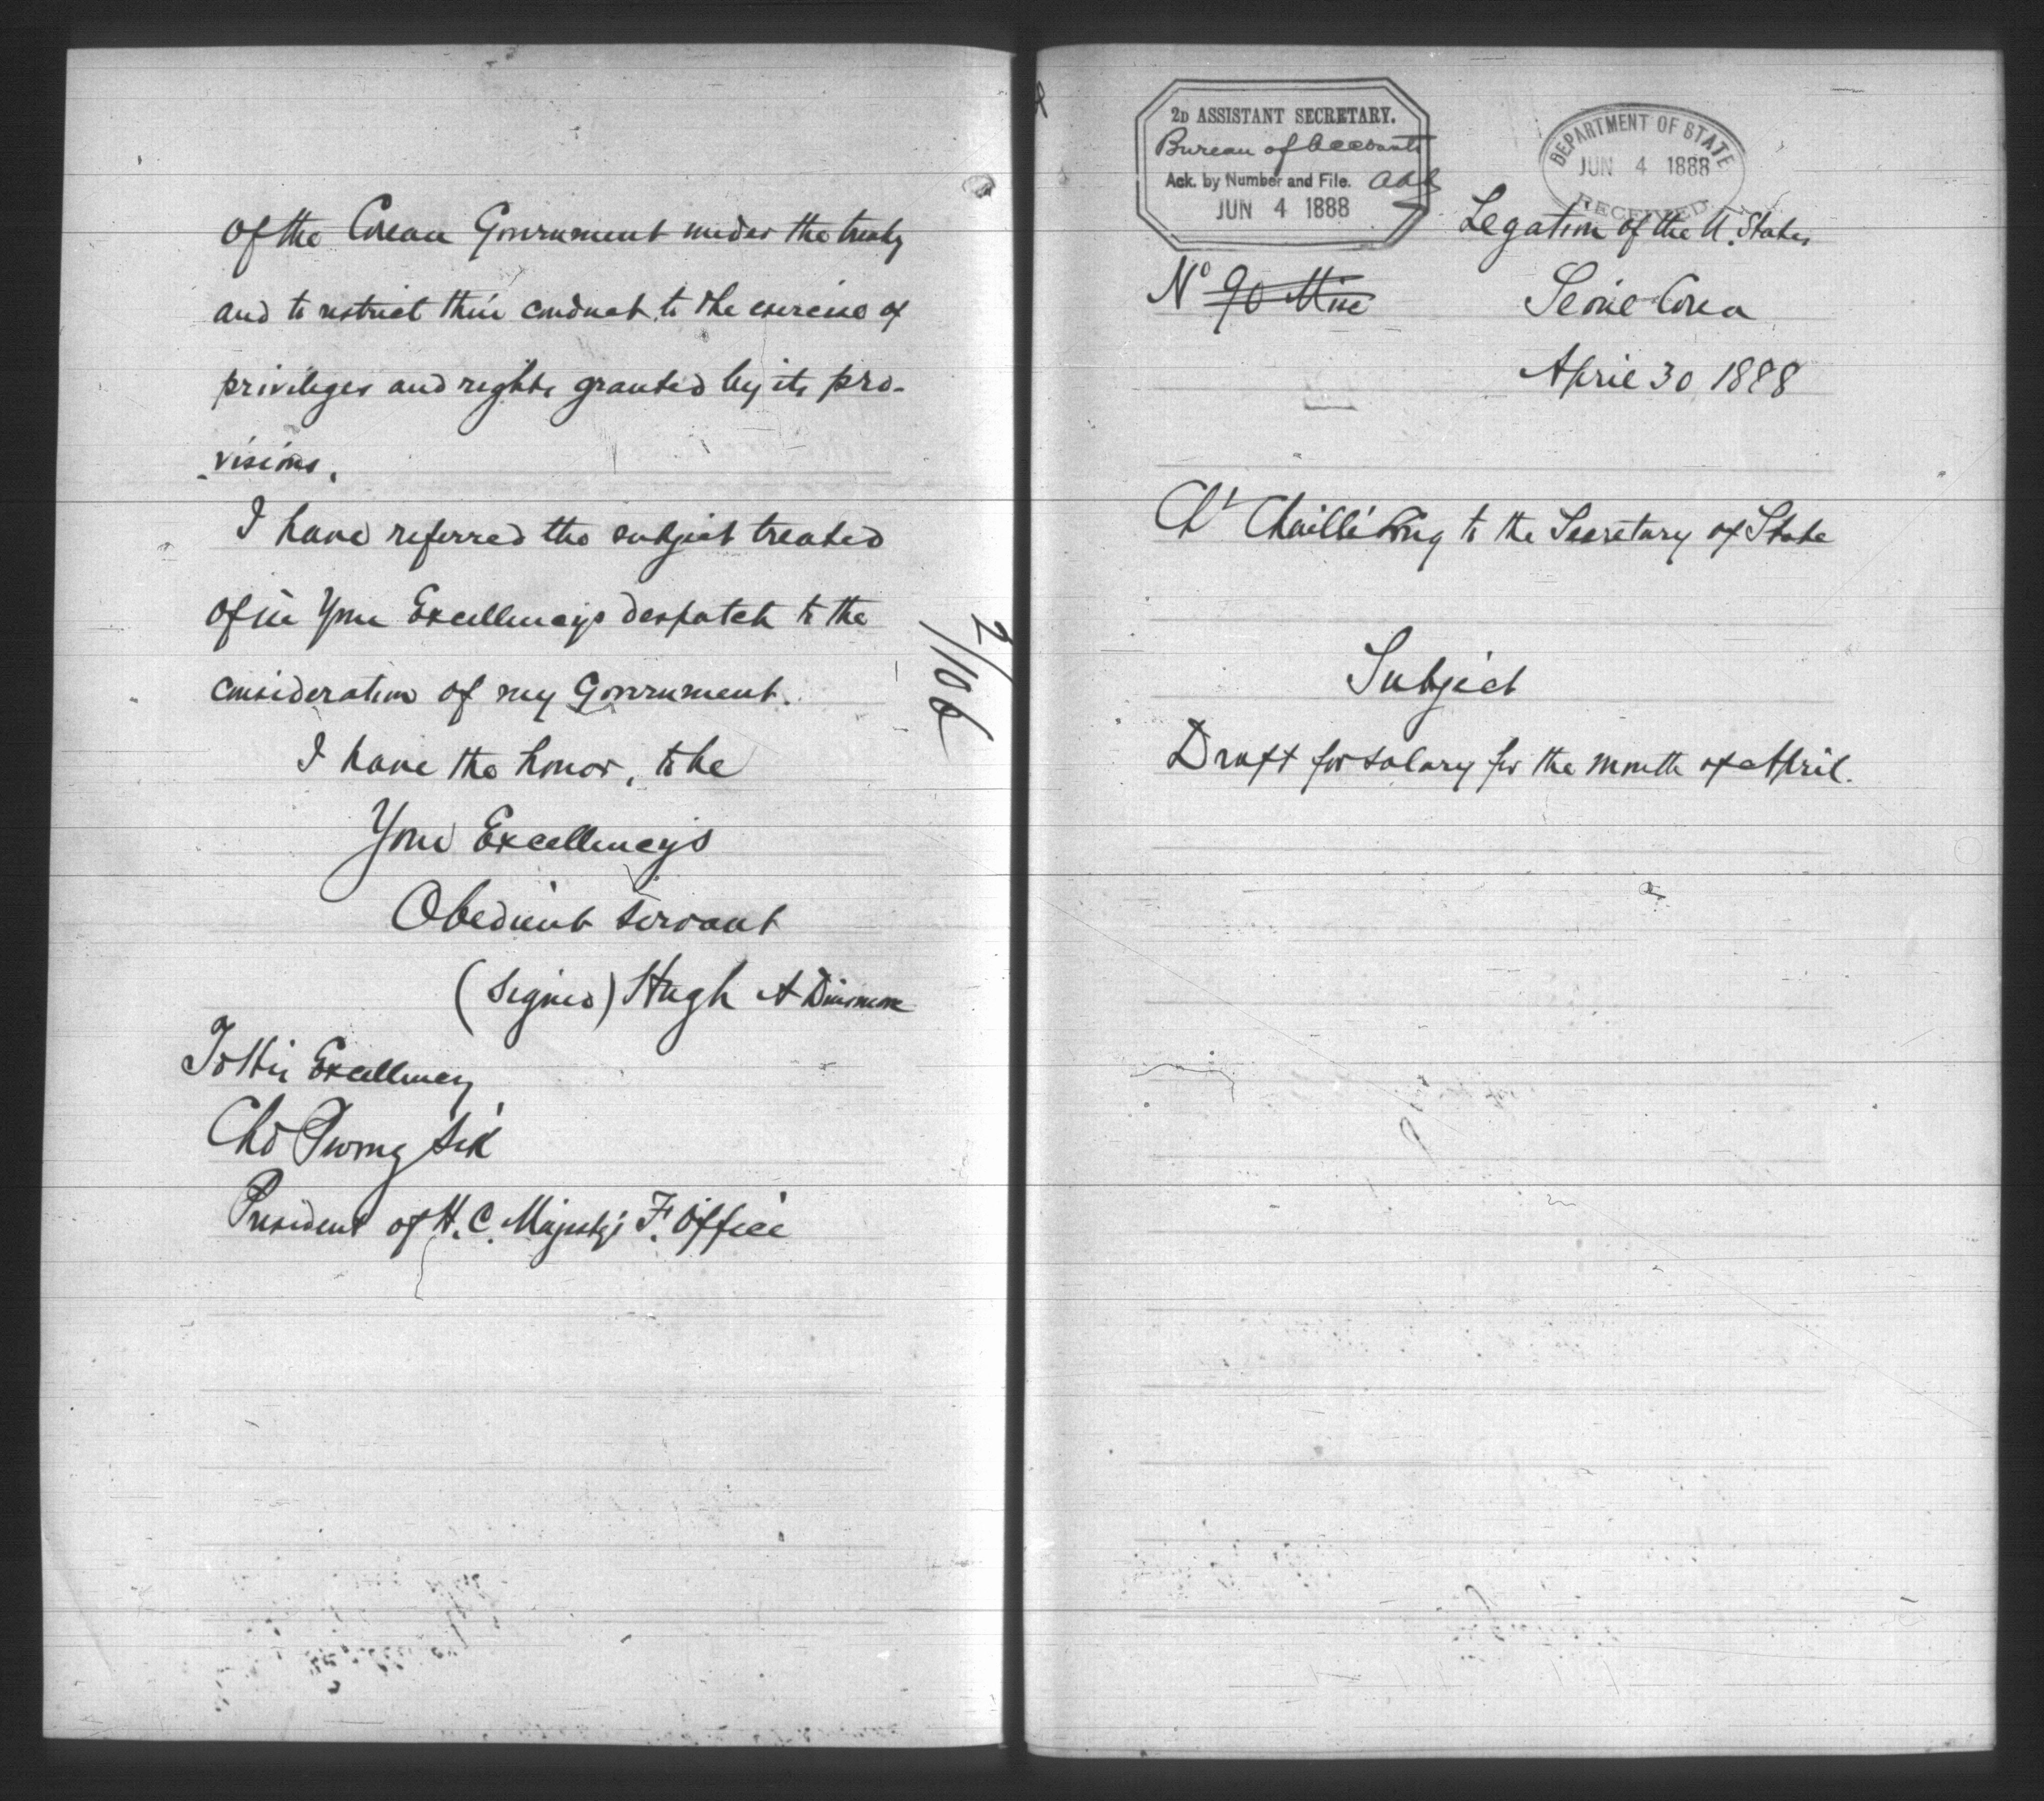 of the Corean Government under the treaty
and to restrict their conduct to the exercise of
privileges and rights granted by its pro-
visions.
I have referred the subject treated
of in Your Excellency's despatch to the
consideration of my Government.
I have the honor, to be
Your Excellency's
Obedient servant
(signed) Hugh A Dinsmore
To His Excellency
Cho Pyong Sik
President of H. C. Majesty's F. Office
2/106
2D ASSISTANT SECRETARY.
Bureau of Accounts
Ack. by Number and File.
JUN 4 1888
DEPARTMENT OF STATE
JUN 4 1888
RECEIVED
Legation of the U. States
No 90 Misc
Seoul Corea
April 30, 1888
Ch. Chaillé Long to the Secretary of State
Subject
Draft for salary for the month of April.